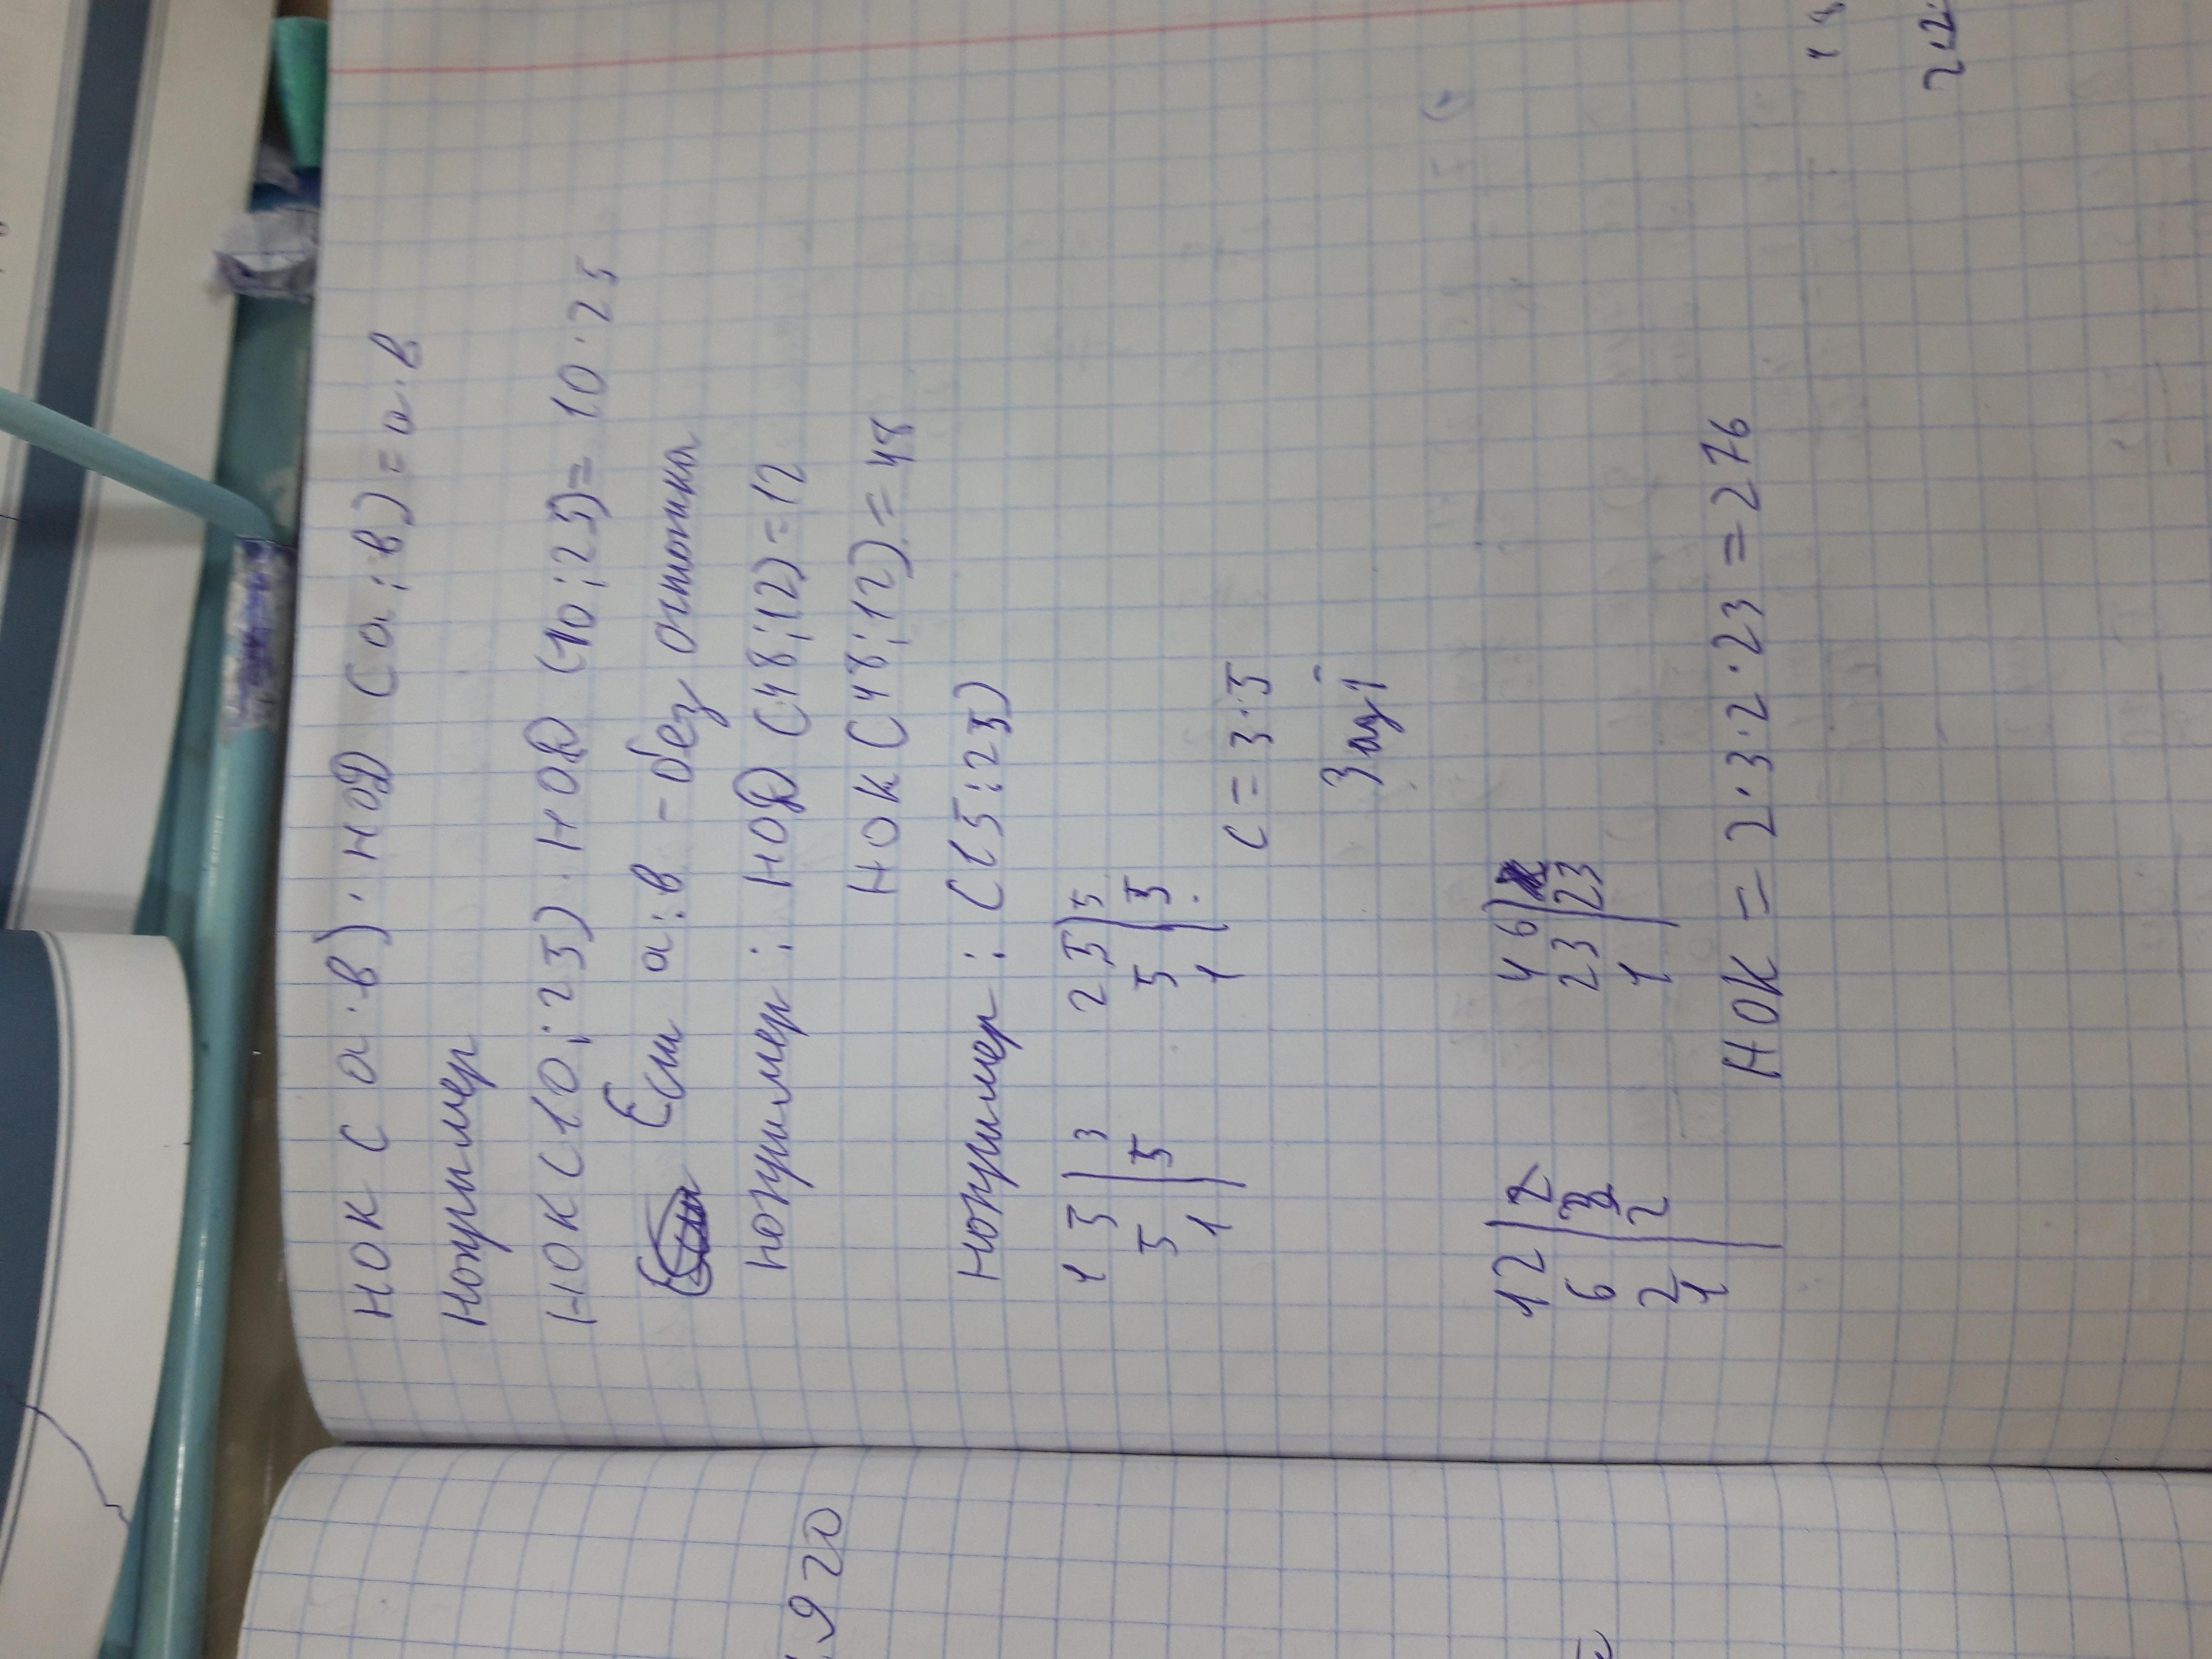 НОК (а; в) · НОД (а; в) = а · в
Например
НОК (10; 25) · НОД (10; 25) = 10 · 25
Если а : в - без остатка
например : НОД (48; 12) = 12
НОК (48; 12) = 48
Например : (15 : 25)
15 | 3 25 | 5
5 | 5 5 | 5
1 | 1 |
с = 3 · 5
12 | 2 46 | 2
6 | 3 23 | 23
2 | 2 1 |
1 |
НОК = 2 · 3 · 2 · 23 = 276
920